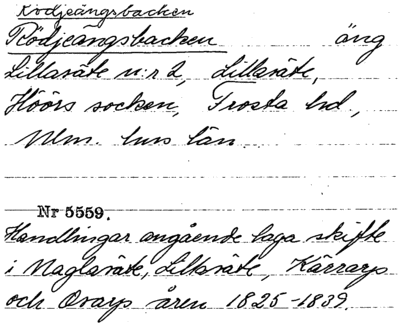 Rödjeängsbacken
Rödjeängsbacken äng
Lillasäte n:r 2, Lillasäte,
Höörs socken, Frosta hd,
Mlm. hus län
Nr 5559.
Handlingar angående laga skifte
i Maglasäte, Lillasäte, Kärrarp
och Orarp åren 1825-1839.